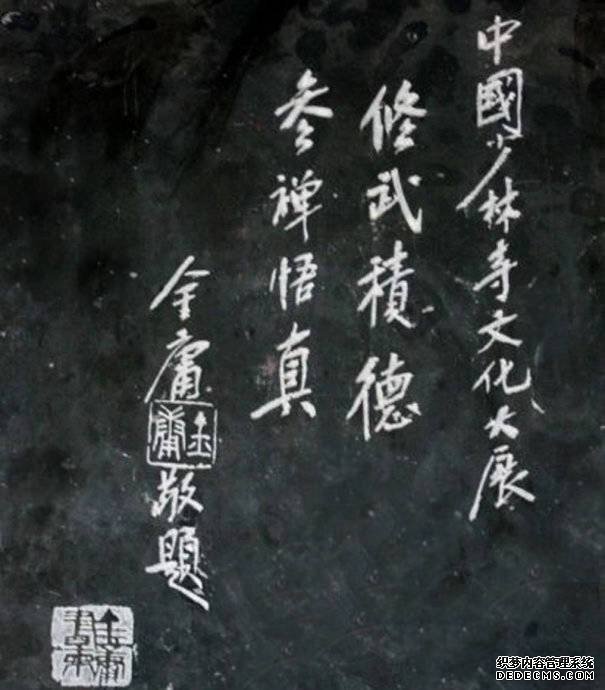 中國少林寺文化大展
修武積德
参禅悟真
金庸
金庸
敬題
织梦内容管理系统
DEDECMS.COM